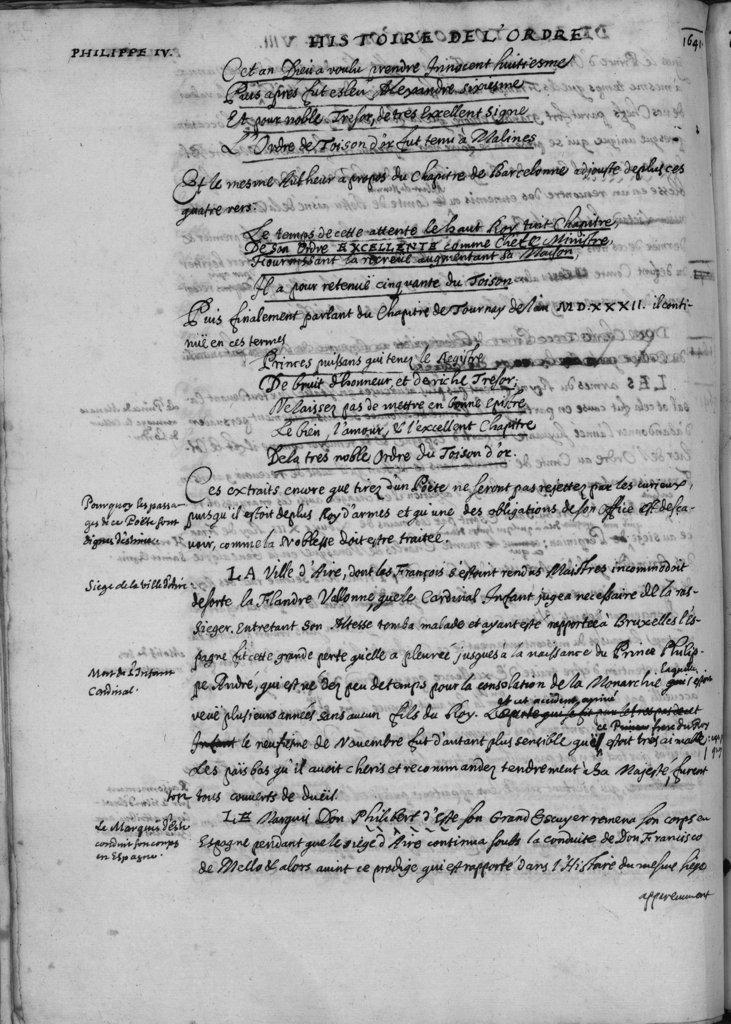 HISTOIRE DE L'ORDRE
PHILIPPE IV.
1641.
Cet an Dieu a voulu prendre Innocent huitiesme
Puis apres fut esleu Alexandre sixiesme
Et pour noble Tresor, de tres Excellent Signe
L'Ordre de Toison d'or fut tenu à Malines
Et le mesme Autheur à propos du Chapitre de Barcelonne adjouste de plus ces
quatre vers.
Le temps de cette attente le haut Roy tint Chapitre,
De son Ordre EXCELLENTE comme Chef & Ministre,
Fournissant la recreüe augmentant sa Maison,
Il a pour retenuë cinquante du Toison
Puis finalement parlant du Chapitre de Tournay de l'an MD.XXXII. il conti-
nuë en ces termes
Princes puissans qui tenez le Registre
De bruit d'honneur, et de riche Tresor,
Ne laissez pas de mettre en bonne Epitre
Le bien, l'amour, & l'excellent Chapitre
De la tres noble Ordre du Toison d'or.
Ces extraits encore que tirez d'un Poëte ne seront pas rejettez par les curieux,
puisqu'il estoit de plus Roy d'armes et qu'une des obligations de son office est de sca-
voir, comme la Noblesse doit estre traitée.
Pourquoy les passa-
ges de ce Poëte sont
dignes d'estime.
LA Ville d'Aire, dont les François s'estoint rendus Maistres incommodoit
de sorte la Flandre Vallonne, que le Cardinal Infant jugea necessaire de la ras-
sieger. Entretant Son Altesse tomba malade et ayant esté rapportée à Bruxelles l'Es-
pagne fit cette grande perte qu'elle a pleureé jusques à la naissance du Prince Philip-
pe André, qui est né dez peu de temps pour la consolation de la Monarchie laquelle s'estoit
veuë plusieurs années sans aucun fils du Roy. et cet accident arrivé
le neufiesme de Novembre fut d'autant plus sensible que ce frere du Roy estoit tres aimable
Les païs bas qu'il avoit cheris et recommandez tendrement à Sa Majesté, furent
tous couverts de dueil.
Siege de la Ville d'Aire
Mort de l'Infant
Cardinal.
LE Marquis Don Philibert d'Este son Grand Escuyer remena son corps en
Espagne pendant que le siege d'Aire continua soubs la conduite de Don Francisco
de Mello & alors avint ce prodige qui est rapporté dans l'Histoire du mesme siege
Le Marquis d'Este
conduit son corps
en Espagne.
apparemment